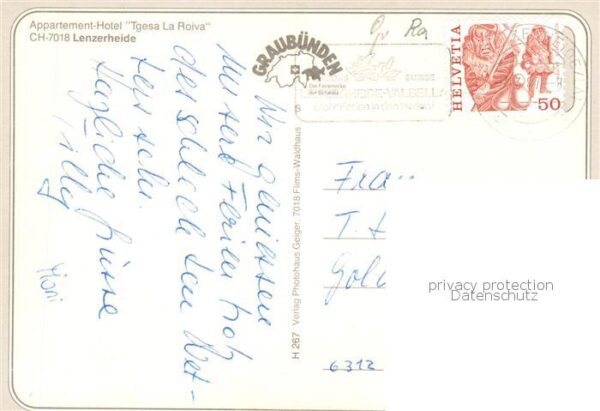 Appartement-Hotel "Tgesa La Roiva"
CH-7018 Lenzerheide
GRAUBÜNDEN
Die Ferienecke
der Schweiz
SUISSE
HELVETIA
50
Wir geniessen
unsere Ferien trotz
des schlechten Wet-
ters sehr.
Herzliche Grüsse
H 267 Verlag Photohaus Geiger, 7018 Flims-Waldhaus
Frau
T.
Gol
6312
privacy protection
Datenschutz